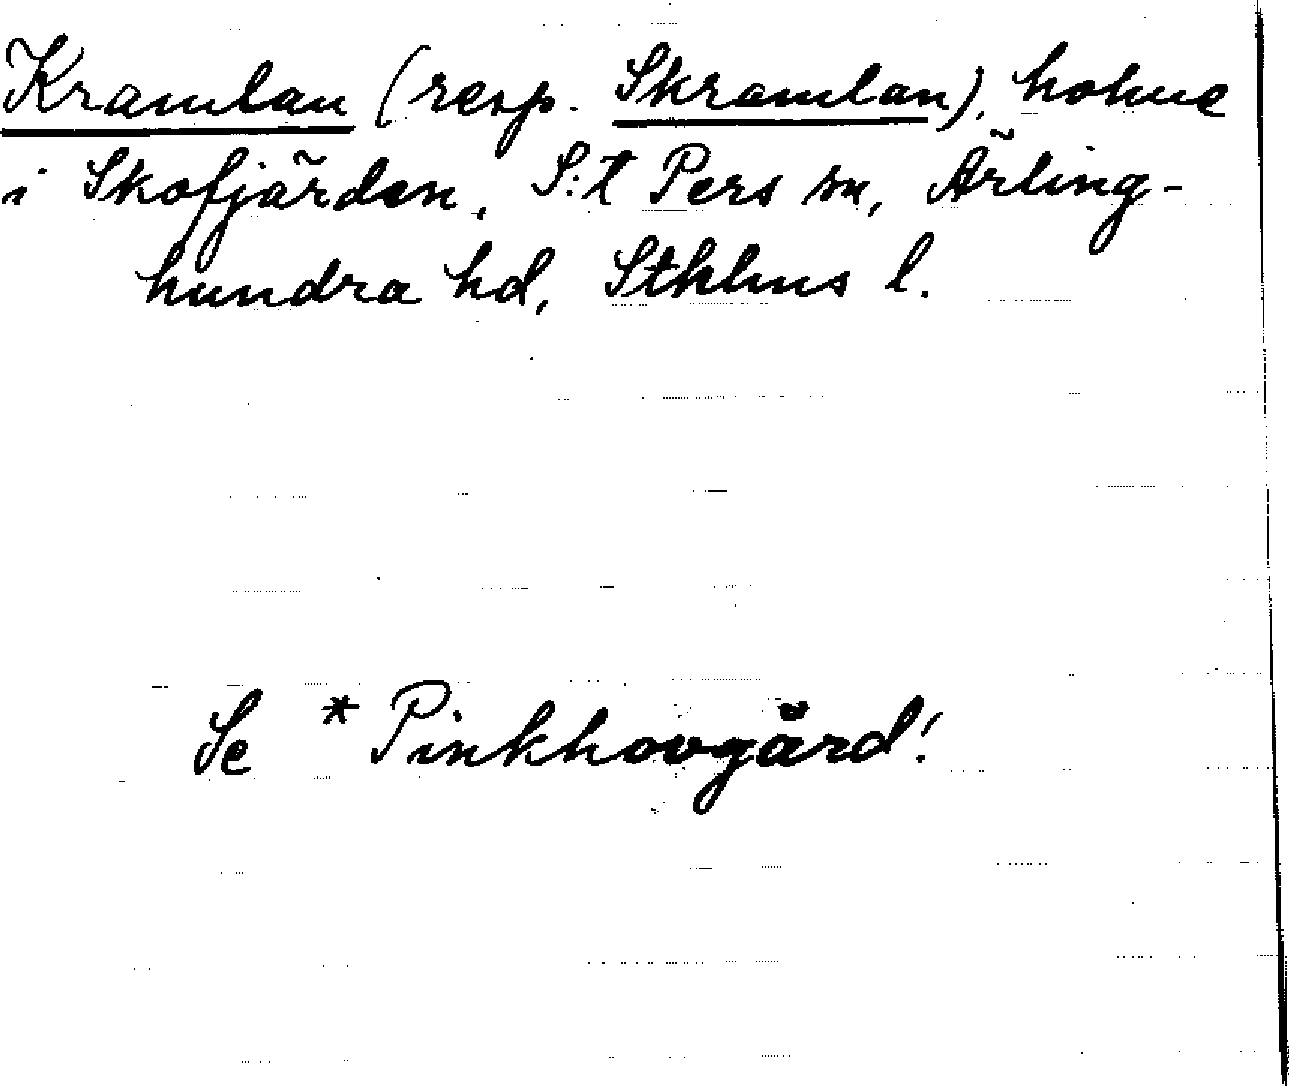 Kramlan (resp. Skramlan), holme
i Skofjärden, S:t Pers sn, Ärling-
hundra hd, Sthlms l.
Se * Pinkhovgård!